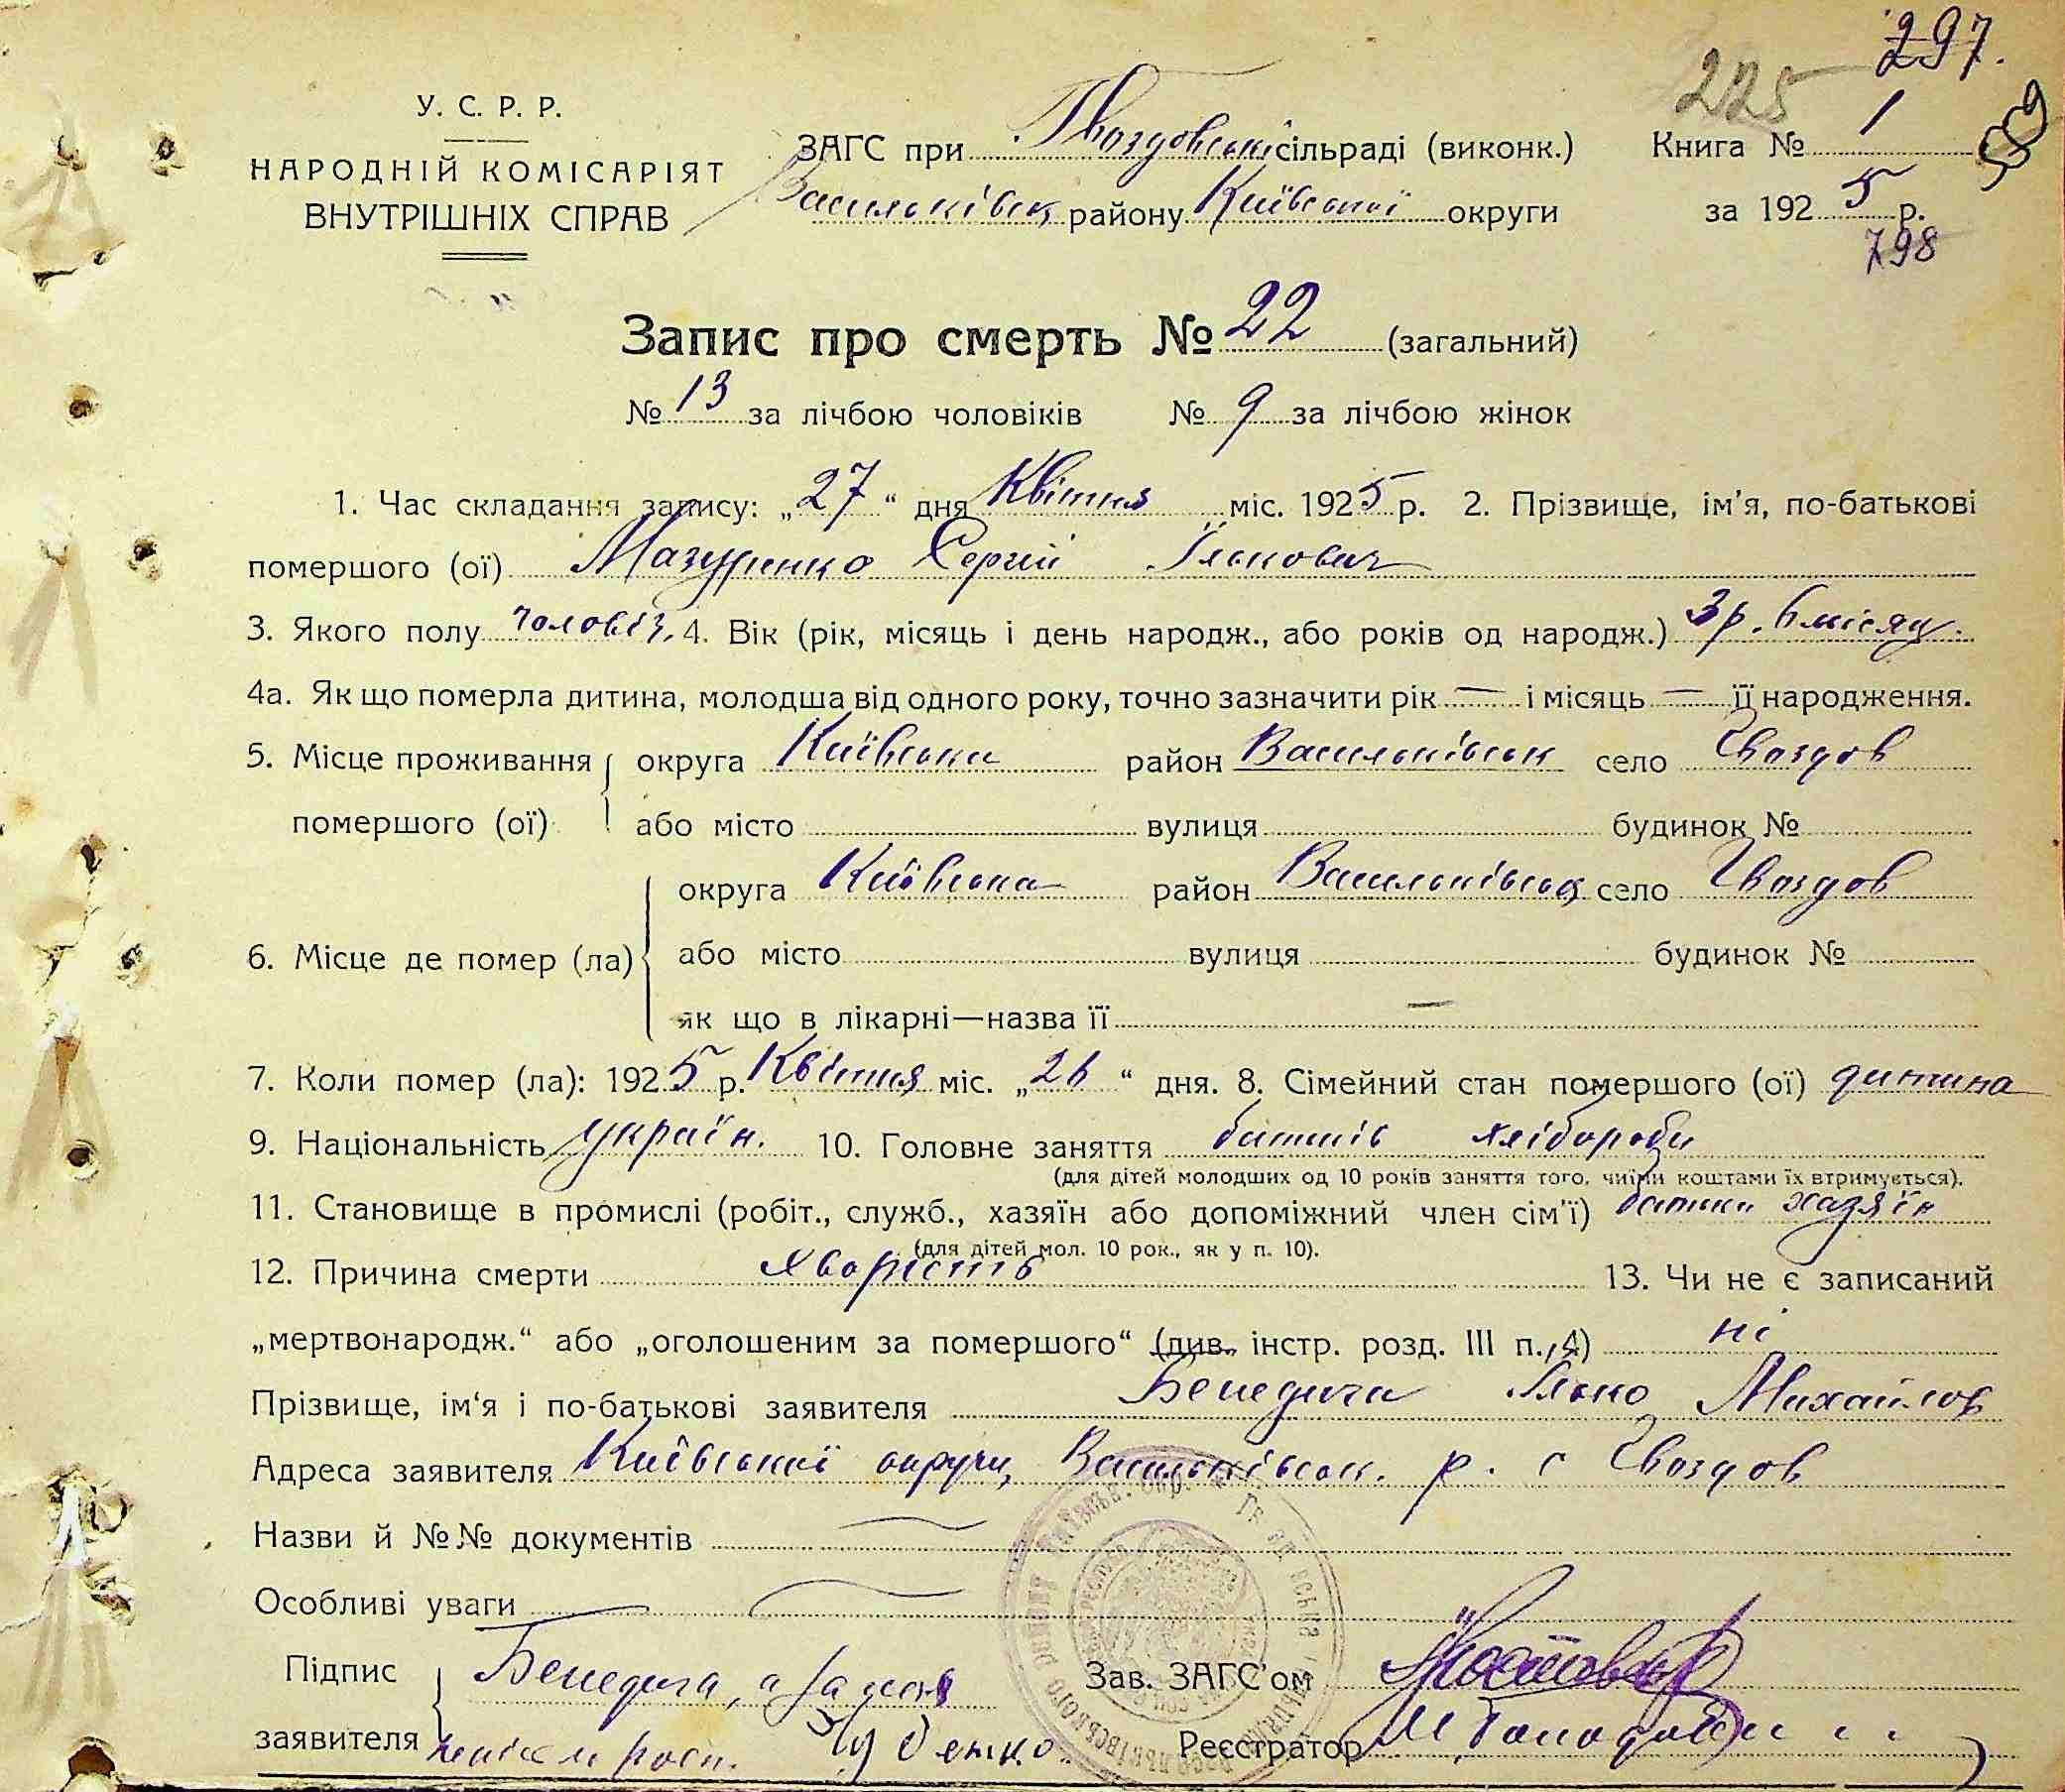 297.
225
У. С. Р. Р.
НАРОДНІЙ КОМІСАРІЯТ
ВНУТРІШНІХ СПРАВ
ЗАГС при Гвоздовській сільраді (виконк.)
Васильківськ району Київської округи
Книга № 1
559
за 1925 р.
798
Запис про смерть № 22 (загальний)
№ 13 за лічбою чоловіків № 9 за лічбою жінок
1. Час складання запису: „27“ дня Квітня міс. 1925 р. 2. Прізвище, ім’я, по-батькові
помершого (ої) Мазуренко Сергій Ількович
3. Якого полу чоловіч. 4. Вік (рік, місяць і день народж., або років од народж.) 3 р. 6 місяц.
4а. Як що померла дитина, молодша від одного року, точно зазначити рік — і місяць — її народження.
5. Місце проживання округа Київська район Васильківськ село Гвоздов
помершого (ої) або місто вулиця будинок №
округа Київська район Васильківськ село Гвоздов
6. Місце де помер (ла) або місто вулиця будинок №
як що в лікарні—назва її —
7. Коли помер (ла): 1925 р. Квітня міс. „26“ дня. 8. Сімейний стан помершого (ої) дитина
9. Національність україн. 10. Головне заняття батьків хлібороби
(для дітей молодших од 10 років заняття того, чиїми коштами їх втримується).
11. Становище в промислі (робіт., служб., хазяїн або допоміжний член сім’ї) батьки хазяїн
(для дітей мол. 10 рок., як у п. 10).
12. Причина смерти хворість 13. Чи не є записаний
„мертвонародж.“ або „оголошеним за помершого“ (див. інстр. розд. III п. 4) ні
Прізвище, ім‘я і по-батькові заявителя Бенедича Ілько Михайлов
Адреса заявителя Київської округи, Васильківськ. р. с Гвоздов
Назви й №№ документів —
Особливі уваги —
Підпис Бенедича, а за него
заявителя росп.
Зав. ЗАГС’ом
Реєстратор М.